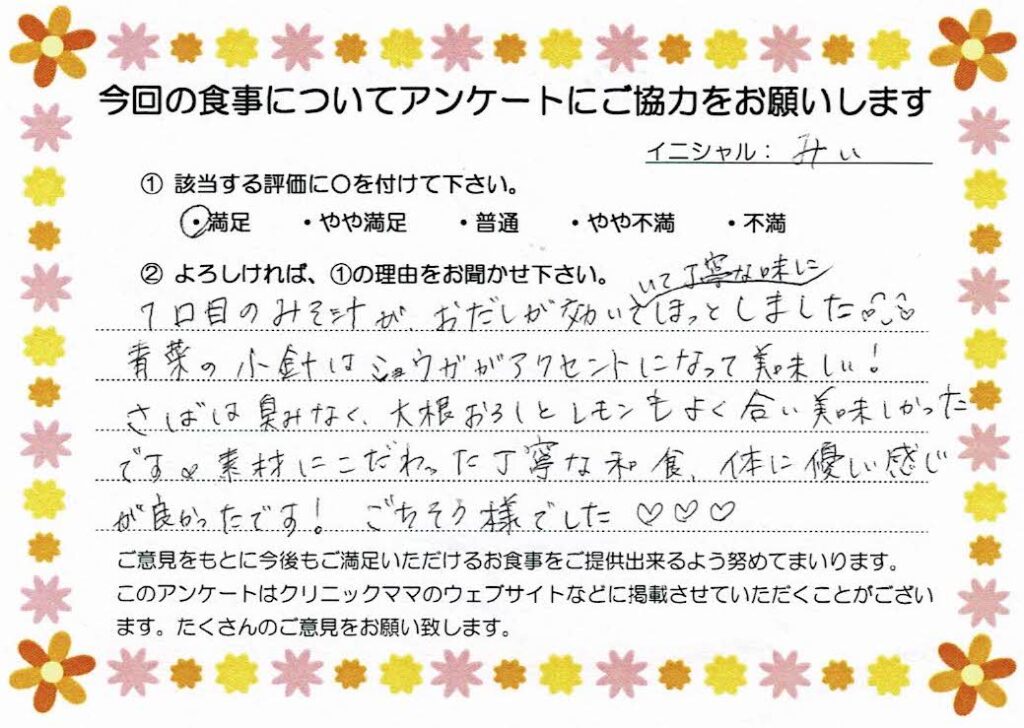 今回の食事についてアンケートにご協力をお願いします
イニシャル： みい
① 該当する評価に〇を付けて下さい。
・満足 ・やや満足 ・普通 ・やや不満 ・不満
② よろしければ、①の理由をお聞かせ下さい。
いて丁寧な味に
1口目のみそ汁が、おだしが効いてほっとしました
青菜の小鉢はショウガがアクセントになって美味しい！
さばは臭みなく、大根おろしとレモンもよく合い美味しかった
です♡素材にこだわった丁寧な和食、体に優しい感じ
が良かったです！ ごちそう様でした ♡♡♡
ご意見をもとに今後もご満足いただけるお食事をご提供出来るよう努めてまいります。
このアンケートはクリニックママのウェブサイトなどに掲載させていただくことがござい
ます。たくさんのご意見をお願い致します。